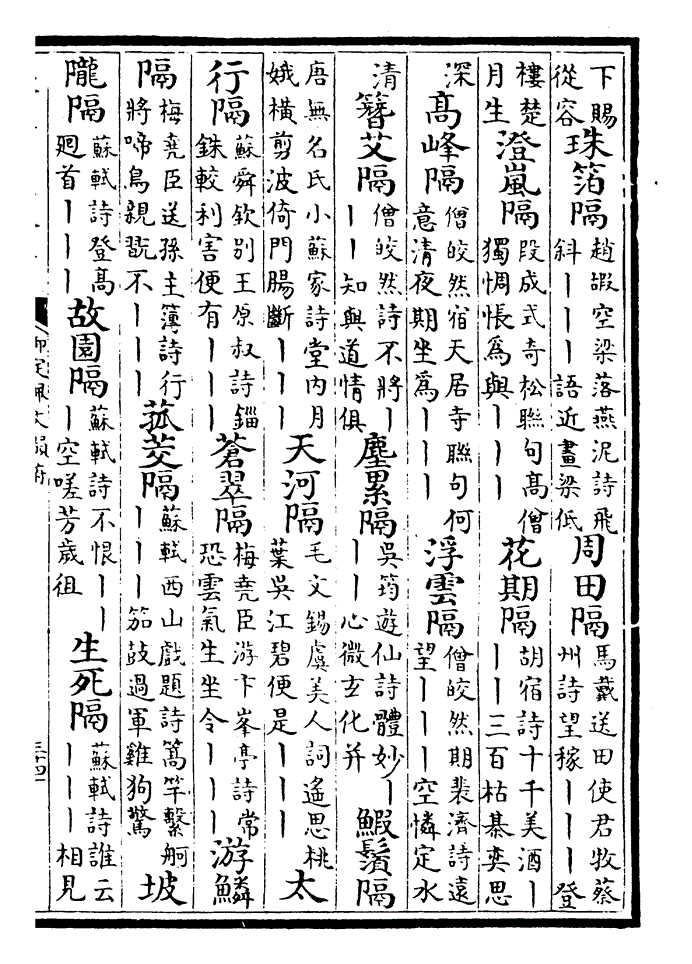 下賜
從容
珠箔隔
趙嘏空梁落燕泥詩飛
斜丨丨丨語近畫梁低
周田隔
馬戴送田使君牧蔡
州詩望稼丨丨丨登
樓楚
月生
澄嵐隔
段成式奇松聯句高僧
獨惆悵爲與丨丨丨
花期隔
胡宿詩十千美酒丨
丨丨三百枯棊奕思
深
高峰隔
僧皎然宿天居寺聯句何
意清夜期坐爲丨丨丨
浮雲隔
僧皎然期裴濟詩遠
望丨丨丨空憐定水
清
簪艾隔
僧皎然詩不將丨
丨丨知與道情俱
塵累隔
吳筠遊仙詩體妙丨
丨丨心微玄化并
鰕鬚隔
唐無名氏小蘇家詩堂内月
娥橫剪波倚門腸斷丨丨丨
天河隔
毛文錫虞美人詞遙思桃
葉吳江碧便是丨丨丨
太
行隔
蘇舜欽別王原叔詩錙
銖較利害便有丨丨丨
蒼翠隔
梅堯臣游卞峯亭詩常
恐雲氣生坐令丨丨丨
游鱗
隔
梅堯臣送孫主簿詩行
將啼鳥親翫不丨丨丨
菰茭隔
蘇軾西山戲題詩篙竿繫舸
丨丨丨笳鼓過軍雞狗驚
坡
隴隔
蘇軾詩登高
廻首丨丨丨
故園隔
蘇軾詩不恨丨丨
丨空嗟芳歲徂
生死隔
蘇軾詩誰云
丨丨丨相見
御定佩文韻府
三十四